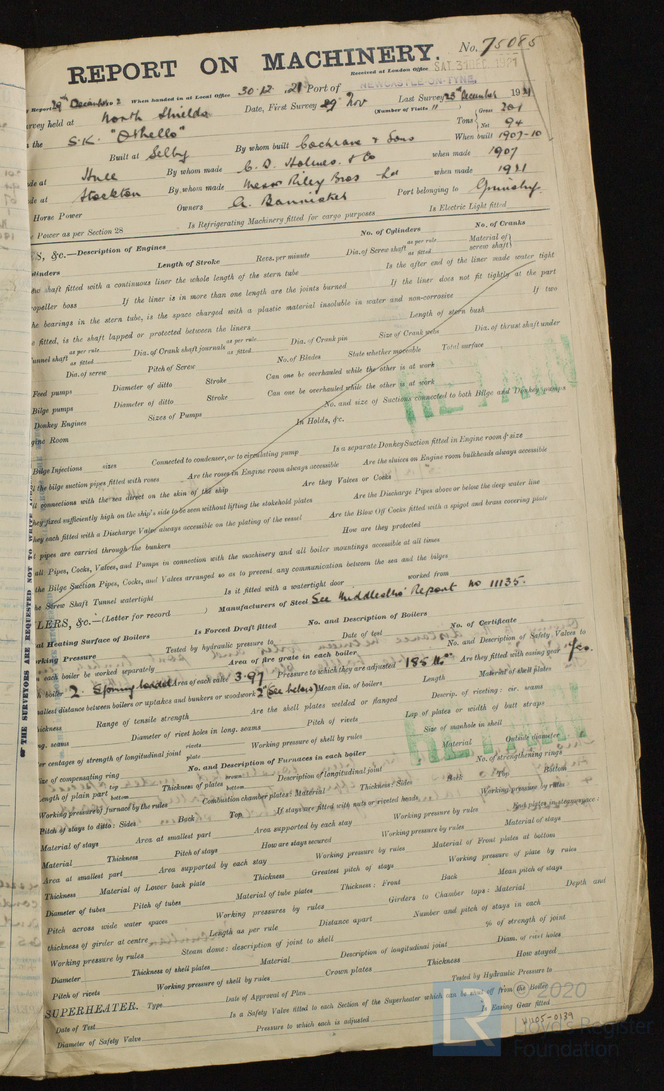 REPORT ON MACHINERY. No. 75085
Received at London Office SAT. 31 DEC. 1921
NEWCASTLE-ON-TYNE.
29th December When handed in at Local Office 30.12.21 Port of
Survey held at North Shields Date, First Survey 29 Nov Last Survey 23rd December 1921
(Number of Visits 11)
the S.K. "Othello" Tons Gross 201 Net 94
Built at Selby By whom built Cochrane & Sons When built 1907-10
made at Hull By whom made C. D. Holmes & Co when made 1907
made at Stockton By whom made Messrs Riley Bros Ltd when made 1921
Horse Power Owners A. Bannister Port belonging to Grimsby
Power as per Section 28 Is Refrigerating Machinery fitted for cargo purposes Is Electric Light fitted
ES, &c.—Description of Engines No. of Cylinders No. of Cranks
Cylinders Length of Stroke Revs. per minute Dia. of Screw shaft as per rule as fitted Material of screw shaft
shaft fitted with a continuous liner the whole length of the stern tube Is the after end of the liner made water tight
propeller boss If the liner is in more than one length are the joints burned If the liner does not fit tightly at the part
the bearings in the stern tube, is the space charged with a plastic material insoluble in water and non-corrosive If two
fitted, is the shaft lapped or protected between the liners Length of stern bush
Tunnel shaft as per rule as fitted Dia. of Crank shaft journals as per rule as fitted Dia. of Crank pin Size of Crank webs Dia. of thrust shaft under
Dia. of screw Pitch of Screw No. of Blades State whether moveable Total surface
Feed pumps Diameter of ditto Stroke Can one be overhauled while the other is at work
Bilge pumps Diameter of ditto Stroke Can one be overhauled while the other is at work
Donkey Engines Sizes of Pumps No. and size of Suctions connected to both Bilge and Donkey pumps
Engine Room In Holds, &c.
RETAIN
Bilge Injections sizes Connected to condenser, or to circulating pump Is a separate Donkey Suction fitted in Engine room & size
the bilge suction pipes fitted with roses Are the roses in Engine room always accessible Are the sluices on Engine room bulkheads always accessible
all connections with the sea direct on the skin of the ship Are they Valves or Cocks
they fixed sufficiently high on the ship's side to be seen without lifting the stokehold plates Are the Discharge Pipes above or below the deep water line
they each fitted with a Discharge Valve always accessible on the plating of the vessel Are the Blow Off Cocks fitted with a spigot and brass covering plate
pipes are carried through the bunkers How are they protected
all Pipes, Cocks, Valves, and Pumps in connection with the machinery and all boiler mountings accessible at all times
the Bilge Suction Pipes, Cocks, and Valves arranged so as to prevent any communication between the sea and the bilges
the Screw Shaft Tunnel watertight Is it fitted with a watertight door worked from
OF THE SURVEYORS ARE REQUESTED NOT TO WRITE
LERS, &c.—(Letter for record ) Manufacturers of Steel See Middlesbro' Report no 11135.
Total Heating Surface of Boilers Is Forced Draft fitted No. and Description of Boilers
Working Pressure Tested by hydraulic pressure to Date of test No. of Certificate
each boiler be worked separately Area of fire grate in each boiler No. and Description of Safety Valves to
each boiler 2. Spring loaded Area of each valve 3.97 Pressure to which they are adjusted 185 lbs Are they fitted with easing gear Yes.
smallest distance between boilers or uptakes and bunkers or woodwork 2' (See below) Mean dia. of boilers Length Material of shell plates
Thickness Range of tensile strength Are the shell plates welded or flanged Descrip. of riveting: cir. seams
long. seams Diameter of rivet holes in long. seams Pitch of rivets Lap of plates or width of butt straps
Per centages of strength of longitudinal joint rivets plate Working pressure of shell by rules Size of manhole in shell
Size of compensating ring No. and Description of Furnaces in each boiler Material Outside diameter
RETAIN
Length of plain part top bottom Thickness of plates crown bottom Description of longitudinal joint No. of strengthening rings
Working pressure of furnace by the rules Combustion chamber plates: Material Thickness: Sides Back Top Bottom
Pitch of stays to ditto: Sides Back Top If stays are fitted with nuts or riveted heads Working pressure by rules
Material of stays Area at smallest part Area supported by each stay Working pressure by rules
Material Thickness Pitch of stays How are stays secured Working pressure by rules Material of stays
Area at smallest part Area supported by each stay Working pressure by rules Material of Front plates at bottom
Thickness Material of Lower back plate Thickness Greatest pitch of stays Working pressure of plate by rules
Diameter of tubes Pitch of tubes Material of tube plates Thickness: Front Back Mean pitch of stays
Pitch across wide water spaces Working pressures by rules Girders to Chamber tops: Material Depth and
thickness of girder at centre Length as per rule Distance apart Number and pitch of stays in each
Working pressure by rules Steam dome: description of joint to shell % of strength of joint
Diameter Thickness of shell plates Material Description of longitudinal joint Diam. of rivet holes
Pitch of rivets Working pressure of shell by rules Crown plates Thickness How stayed
SUPERHEATER. Type Date of Approval of Plan Tested by Hydraulic Pressure to
Date of Test Is a Safety Valve fitted to each Section of the Superheater which can be shut off from the Boiler
Diameter of Safety Valve Pressure to which each is adjusted Is Easing Gear fitted
W1105-0139
LR © 2020
Lloyd's Register
Foundation